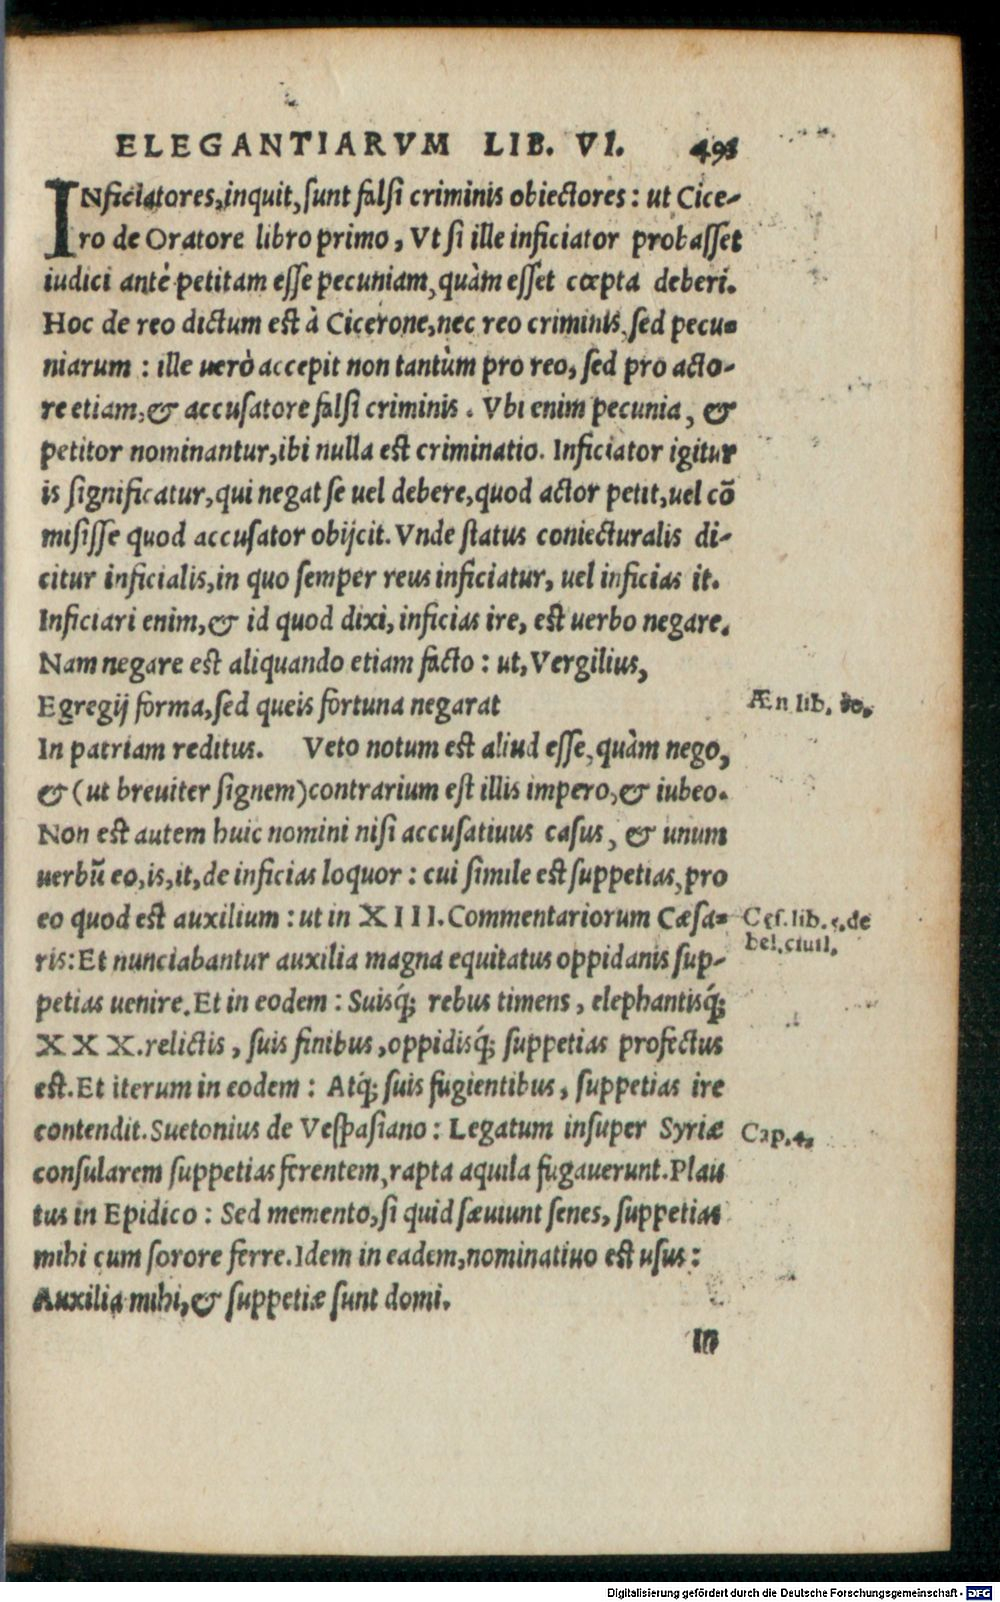 ELEGANTIARVM LIB. VI. 495
INficiatores, inquit, ſunt falſi criminis obiectores: ut Cice-
ro de Oratore libro primo, Vt ſi ille inficiator probaſſet
iudici antè petitam eſſe pecuniam, quàm eſſet cœpta deberi.
Hoc de reo dictum eſt à Cicerone, nec reo criminis, ſed pecu-
niarum: ille uerò accepit non tantùm pro reo, ſed pro acto-
re etiam, & accuſatore falſi criminis. Vbi enim pecunia, &
petitor nominantur, ibi nulla eſt criminatio. Inficiator igitur
is ſignificatur, qui negat ſe uel debere, quod actor petit, uel cō
miſiſſe quod accuſator obijcit. Vnde ſtatus coniecturalis di-
citur inficialis, in quo ſemper reus inficiatur, uel inficias it.
Inficiari enim, & id quod dixi, inficias ire, eſt uerbo negare.
Nam negare eſt aliquando etiam facto: ut, Vergilius,
Egregij forma, ſed queis fortuna negarat
Æn lib. 10.
In patriam reditus. Veto notum eſt aliud eſſe, quàm nego,
& (ut breuiter ſignem) contrarium eſt illis impero, & iubeo.
Non eſt autem huic nomini niſi accuſatiuus caſus, & unum
uerbū eo, is, it, de inficias loquor: cui ſimile eſt ſuppetias, pro
eo quod eſt auxilium: ut in XIII. Commentariorum Cæſa-
Cęſ. lib. 5. de
bel. ciuil.
ris: Et nunciabantur auxilia magna equitatus oppidanis ſup-
petias uenire. Et in eodem: Suisq́; rebus timens, elephantisq́;
XXX. relictis, ſuis finibus, oppidisq́; ſuppetias profectus
eſt. Et iterum in eodem: Atq́; ſuis fugientibus, ſuppetias ire
contendit. Suetonius de Veſpaſiano: Legatum inſuper Syriæ
Cap. 4.
conſularem ſuppetias ferentem, rapta aquila fugauerunt. Plau
tus in Epidico: Sed memento, ſi quid ſæuiunt ſenes, ſuppetias
mihi cum ſorore ferre. Idem in eadem, nominatiuo eſt uſus:
Auxilia mihi, & ſuppetiæ ſunt domi.
In
Digitalisierung gefördert durch die Deutsche Forschungsgemeinschaft - DFG